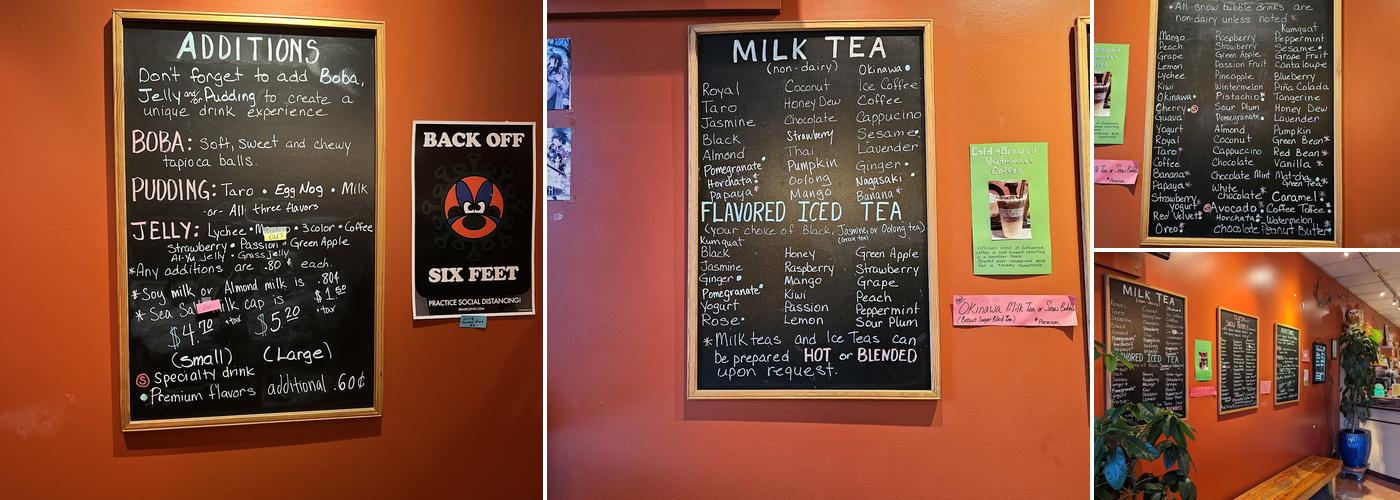 ADDITIONS
Don't forget to add Boba,
Jelly and/or Pudding to create a
unique drink experience
BOBA: Soft, sweet and chewy
tapioca balls.
PUDDING: Taro • Egg Nog • Milk
-or- All three flavors
JELLY: Lychee • • 3color • Coffee
OUT
Strawberry • Passion • Green Apple
Ai-Yu Jelly • Grass Jelly
*Any additions are .80¢ each.
*Soy milk or Almond milk is .80¢
* Sea Salt milk cap is $1.50
$4.70 +tax $5.20 +tax
(small) (Large)
Ⓢ Specialty drink
• Premium flavors additional .60¢
BACK OFF
SIX FEET
PRACTICE SOCIAL DISTANCING!
MILK TEA
(non-dairy) Okinawa •
Royal Coconut Ice Coffee
Taro Honey Dew Coffee
Jasmine Chocolate Cappuccino
Black Strawberry Sesame •
Almond Thai Lavender
Pomegranate • Pumpkin Ginger •
Horchata • Oolong Nagasaki •
Papaya * Mango Banana *
FLAVORED ICED TEA
(your choice of Black, Jasmine, or Oolong tea)
(Green tea)
Kumquat
Black Honey Green Apple
Jasmine Raspberry Strawberry
Ginger • Mango Grape
Pomegranate • Kiwi Peach
Yogurt Passion Peppermint
Rose • Lemon Sour Plum
*Milk teas and Ice Teas can
be prepared HOT or BLENDED
upon request.
Cold-Brewed
Vietnamese
Coffee
Okinawa Milk Tea or Snow Bubble
(Brown Sugar Black Tea) *Premium
*All snow bubble drinks are
non-dairy unless noted *
Kumquat
Mango Raspberry Peppermint
Peach Strawberry Sesame •
Grape Green Apple Grape Fruit
Lemon Passion Fruit Cantaloupe
Lychee Pineapple Blueberry
Kiwi Wintermelon Piña Colada
Okinawa • Pistachio • Tangerine
Cherry • Ⓢ Sour Plum Honey Dew
Guava Pomegranate • Lavender
Yogurt Almond Pumpkin
Royal Coconut Green Bean *
Taro * Cappuccino Red Bean *
Coffee Chocolate Vanilla *
Banana * Chocolate Mint Matcha •
Green Tea *
Papaya * White chocolate Caramel •
Strawberry yogurt Ⓢ Avocado • Coffee Toffee •
Red Velvet • Horchata • Watermelon
Oreo • chocolate Peanut Butter *
MILK TEA
FLAVORED ICED TEA